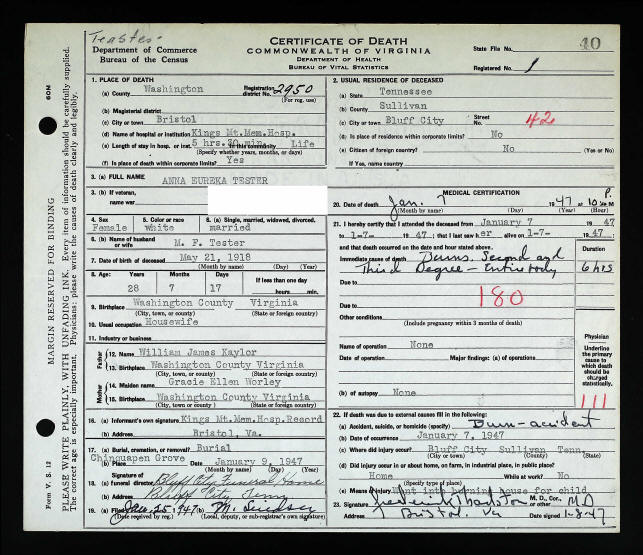 Tester
CERTIFICATE OF DEATH
COMMONWEALTH OF VIRGINIA
Department of Commerce
Bureau of the Census
DEPARTMENT OF HEALTH
BUREAU OF VITAL STATISTICS
State File No. 40
Registered No. 1
1. PLACE OF DEATH
(a) County Washington Registration district No. 2950
(For reg. use)
(b) Magisterial district
(c) City or town Bristol
(d) Name of hospital or institution Kings Mt.Mem.Hosp.
(e) Length of stay in hosp. or inst. 5 hrs.30 min. In this community Life
(Specify whether years, months, or days)
(f) Is place of death within corporate limits? Yes
2. USUAL RESIDENCE OF DECEASED
(a) State Tennessee
(b) County Sullivan
(c) City or town Bluff City Street No. 42
(d) Is place of residence within corporate limits? No
(e) Citizen of foreign country? No (Yes or No)
If Yes, name country
3. (a) FULL NAME ANNA EUREKA TESTER
3. (b) If veteran, name war
4. Sex Female
5. Color or race white
6. (a) Single, married, widowed, divorced. married
6. (b) Name of husband or wife M. F. Tester
7. Date of birth of deceased May 21, 1918
(Month by name) (Day) (Year)
8. Age Years 28 Months 7 Days 17 If less than one day hours min.
9. Birthplace Washington County Virginia
(City, town, or county) (State or foreign country)
10. Usual occupation Housewife
11. Industry or business
Father
12. Name William James Kaylor
13. Birthplace Washington County Virginia
(City, town, or county) (State or foreign country)
Mother
14. Maiden name Gracie Ellen Worley
15. Birthplace Washington County Virginia
(City, town or county) (State or foreign country)
16. (a) Informant's own signature Kings Mt.Mem.Hosp.Record
(b) Address Bristol, Va.
17. (a) Burial, cremation, or removal? Burial
Chinquapen Grove
(b) Place Date January 9, 1947
18. Signature of (a) funeral director Bluff City Funeral Home
(b) Address Bluff City, Tenn
19. (a) Jan. 25 1947 (b) M. Lindsey
(Date received by reg.) (Local, deputy, or sub-registrar's own signature)
MEDICAL CERTIFICATION
20. Date of death Jan. 7 1947 at 10 P. M
(Month by name) (Day) (Year) (Hour)
21. I hereby certify that I attended the deceased from January 7 1947
to 1-7- 1947; that I last saw her alive on 1-7- 1947;
and that death occurred on the date and hour stated above. Duration
Immediate cause of death Burns. Second and
Third Degree - Entire body 6 hrs
Due to
180
Due to
Other conditions
(Include pregnancy within 3 months of death)
Name of operation None
Date of operation Major findings: (a) of operations
(b) of autopsy None
Physician
Underline the primary cause to which death should be charged statistically.
111
22. If death was due to external causes fill in the following:
(a) Accident, suicide, or homicide (specify) Burn-accident
(b) Date of occurrence January 7, 1947
(c) Where did injury occur? Bluff City Sullivan Tenn.
(City or town) (County) (State)
(d) Did injury occur in or about home, on farm, in industrial place, in public place?
Home While at work? No
(Specify type of place)
(e) Means of injury Went into burning house for child
23. Signature M. D., Cor., or other M.D.
Address Bristol, Va Date signed 1-8-47
MARGIN RESERVED FOR BINDING
PLEASE WRITE PLAINLY, WITH UNFADING INK. Every item of information should be carefully supplied.
The correct age is especially important. Physicians: please write the causes of death clearly and legibly.
Form V. S. 12
60M